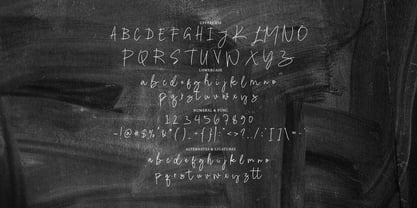 UPPERCASE
ABCDEFGHIJKLMNO
PQRSTUVWXYZ
LOWERCASE
abcdefghijklmno
pqrstuvwxyz
NUMERAL & PUNC
1234567890
ALTERNATES & LIGATURES
abcdefghijklmno
pqrstuvwxyztt